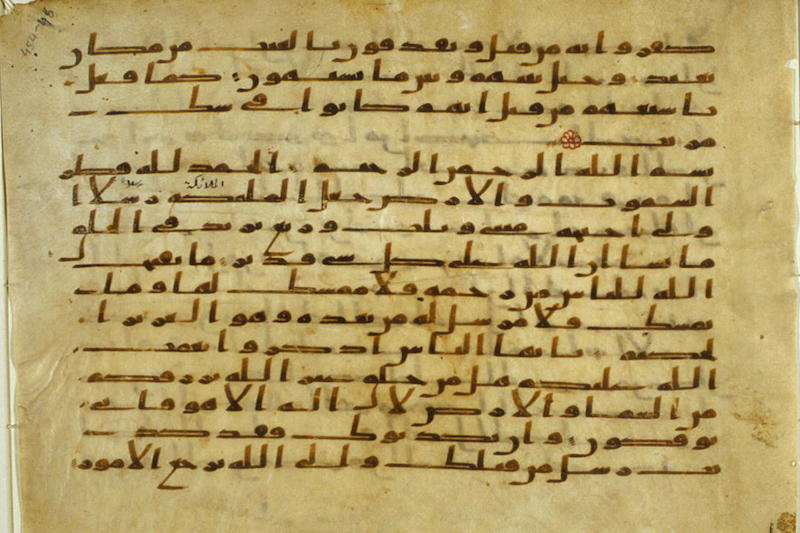 كفروا به من قبل ويقذفون بالغيب من مكان
بعيد وحيل بينهم وبين ما يشتهون كما فعل
باشيعهم من قبل انهم كانوا في شك
مريب
بسم الله الرحمن الرحيم الحمد لله فطر
السموت والارض جعل الملئكة رسلا ا
الملائكة
ولي اجنحة مثنى وثلث وربع يزيد في الخلق
ما يشا ان الله على كل شي قدير ما يفتح
الله للناس من رحمة فلا ممسك لها وما
يمسك فلا مرسل له من بعده وهو العزيز ا
لحكيم يايها الناس اذكروا نعمت
الله عليكم هل من خلق غير الله يرزقكم
من السما والارض لا اله الا هو فانى
توفكون وان يكذبوك فقد كذ
بت رسل من قبلك والى الله ترجع الامور